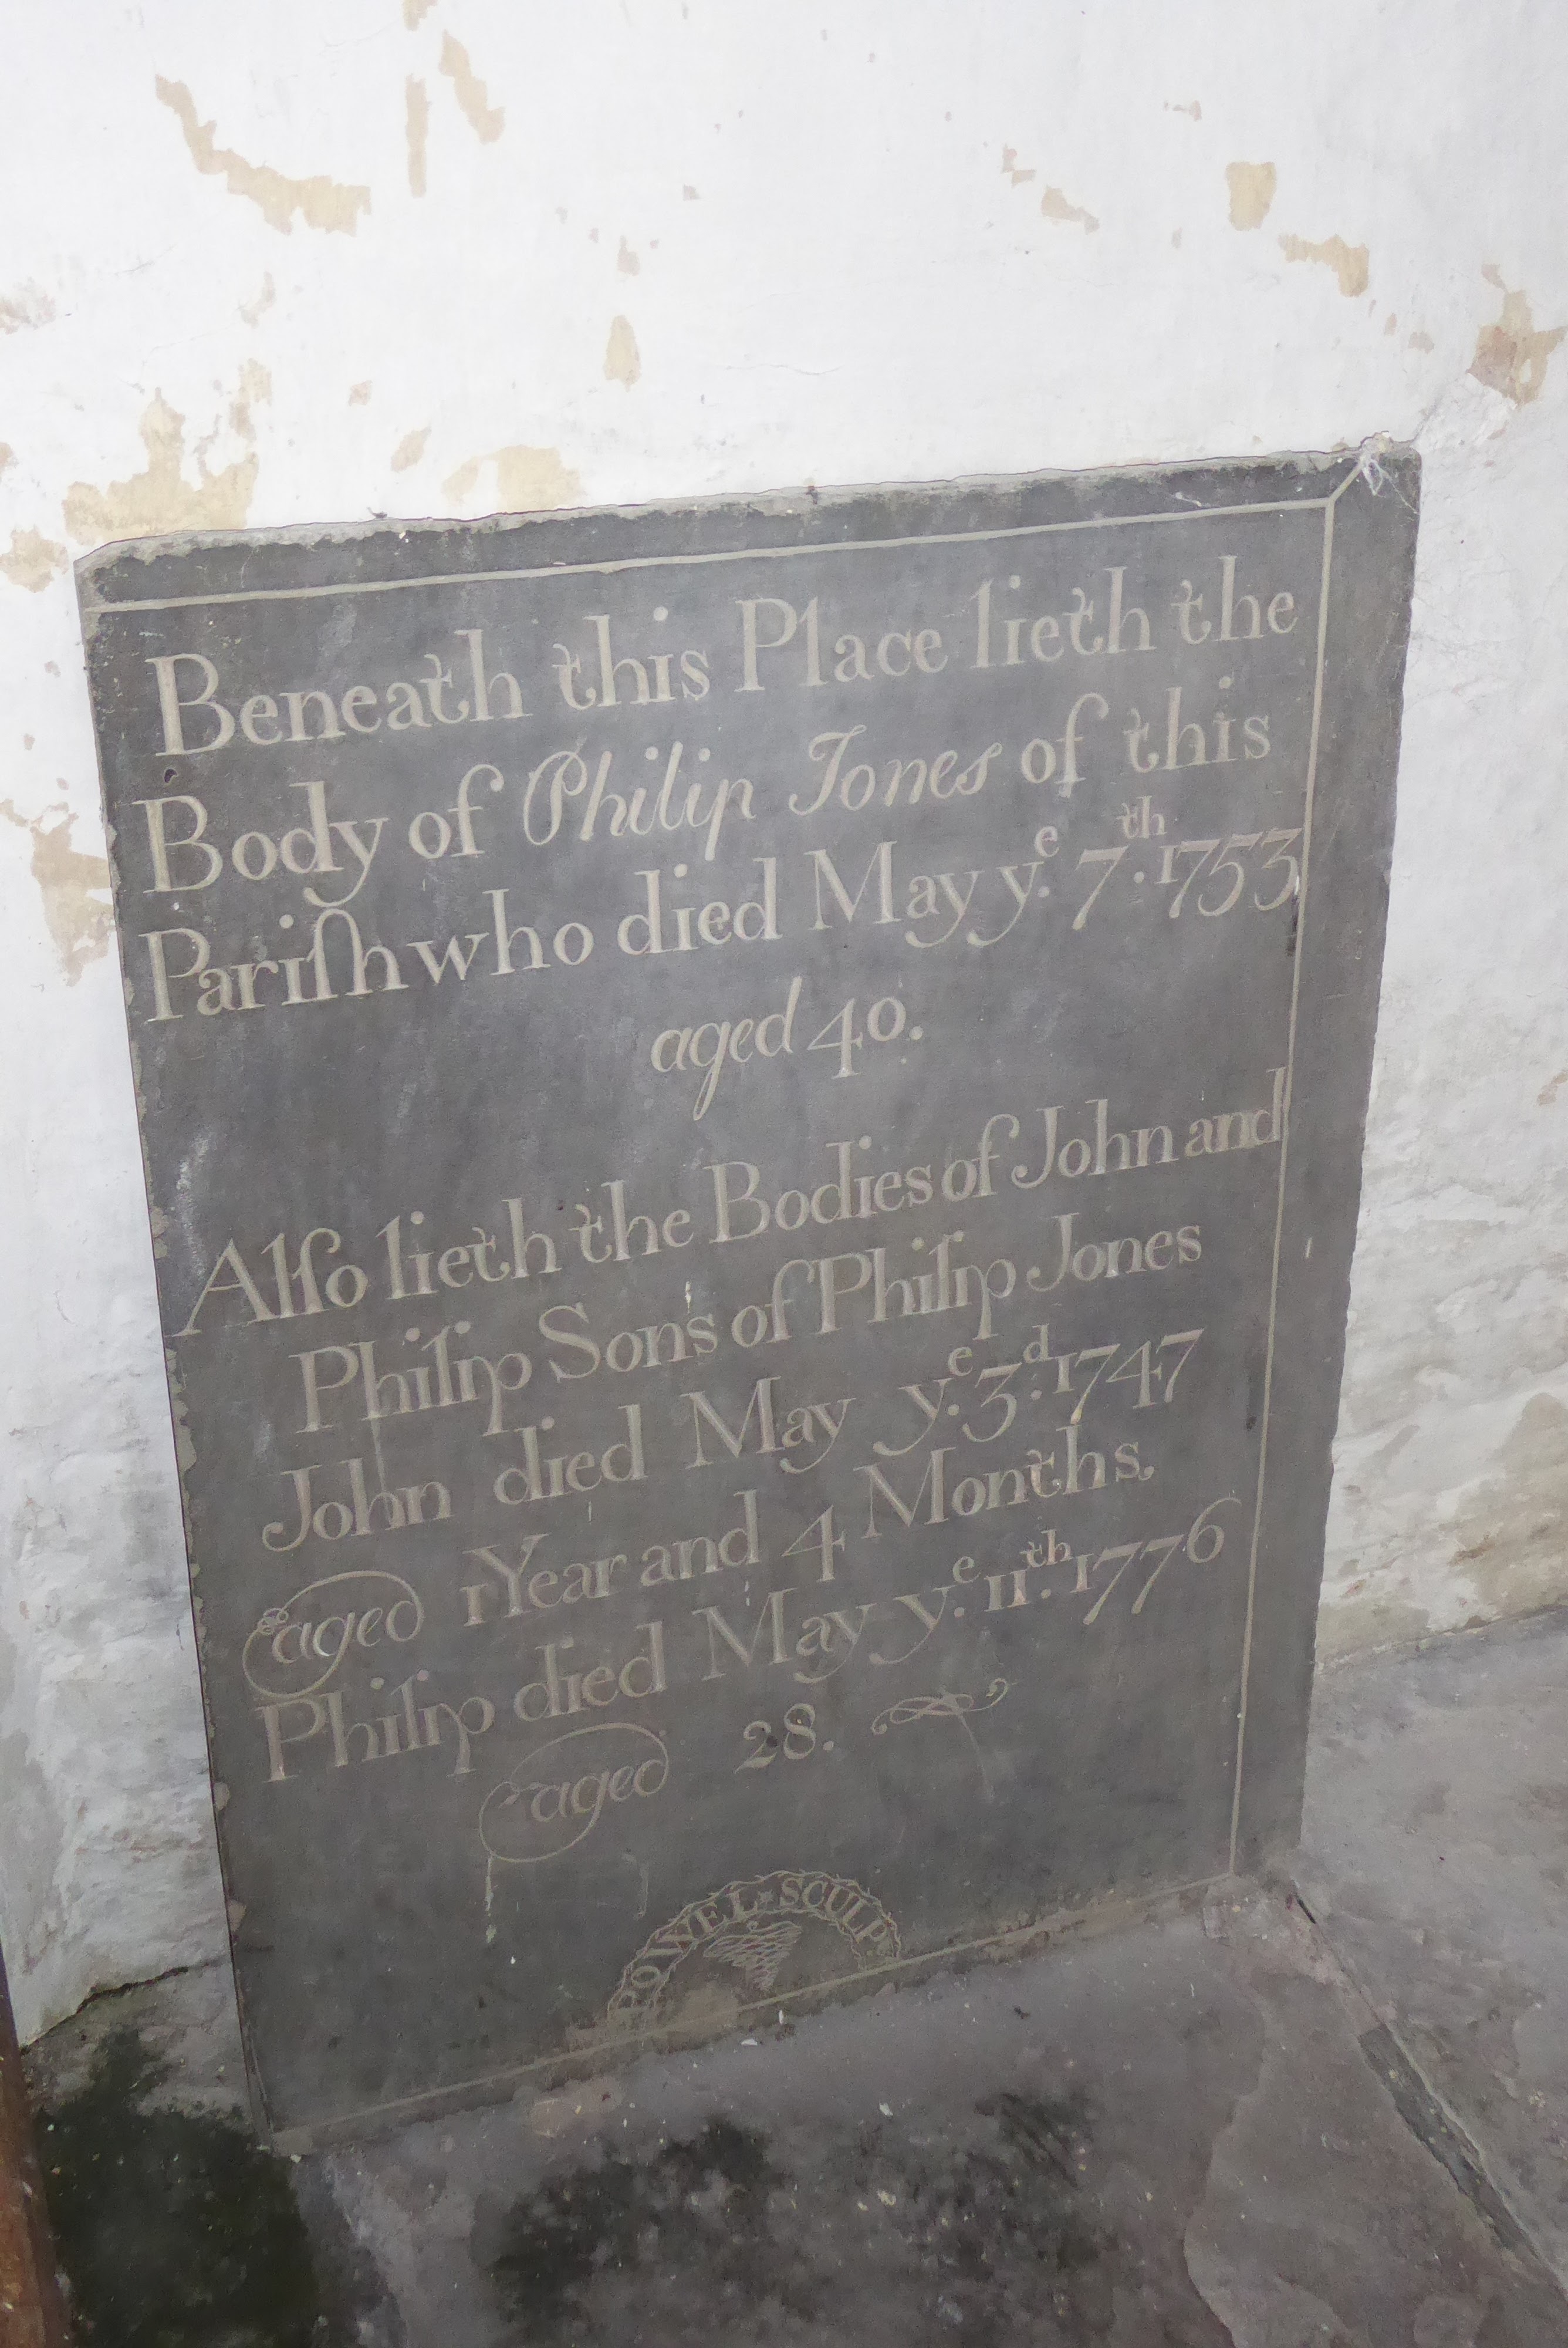 Beneath this Place lieth the
Body of Philip Jones of this
Pariſh who died May yᵉ. 7ᵗʰ. 1753
aged 40.
Alſo lieth the Bodies of John and
Philip Sons of Philip Jones
John died May yᵉ. 3ᵈ. 1747
aged 1 Year and 4 Months.
Philip died May yᵉ. 11ᵗʰ. 1776
aged 28.
POWEL·SCULP.